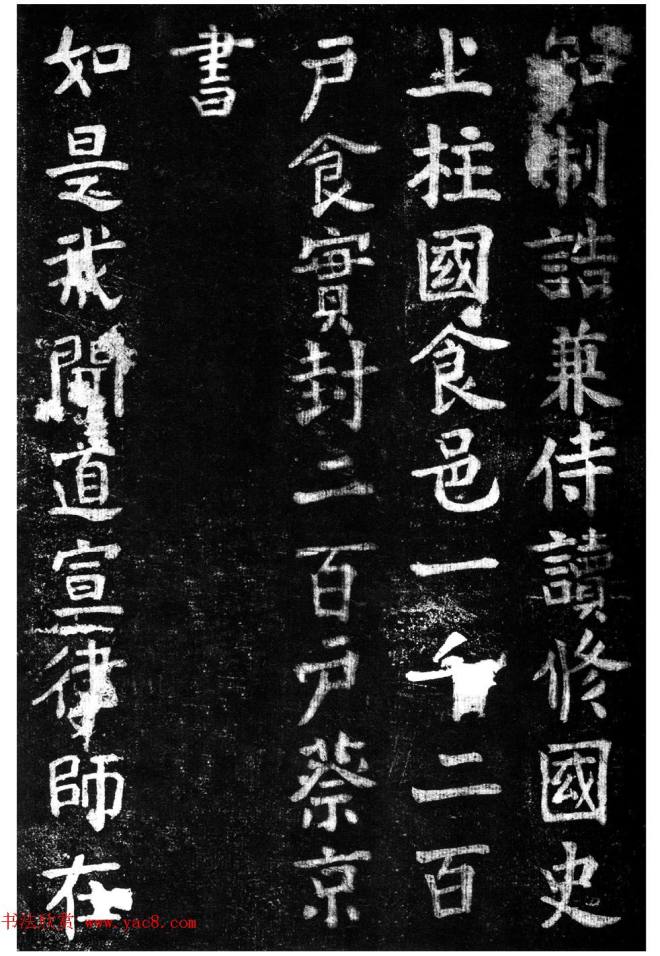 知制誥兼侍讀修國史
上柱國食邑一千二百
戶食實封二百戶蔡京
書
如是我聞道宣律師在
书法欣赏 www.yac8.com